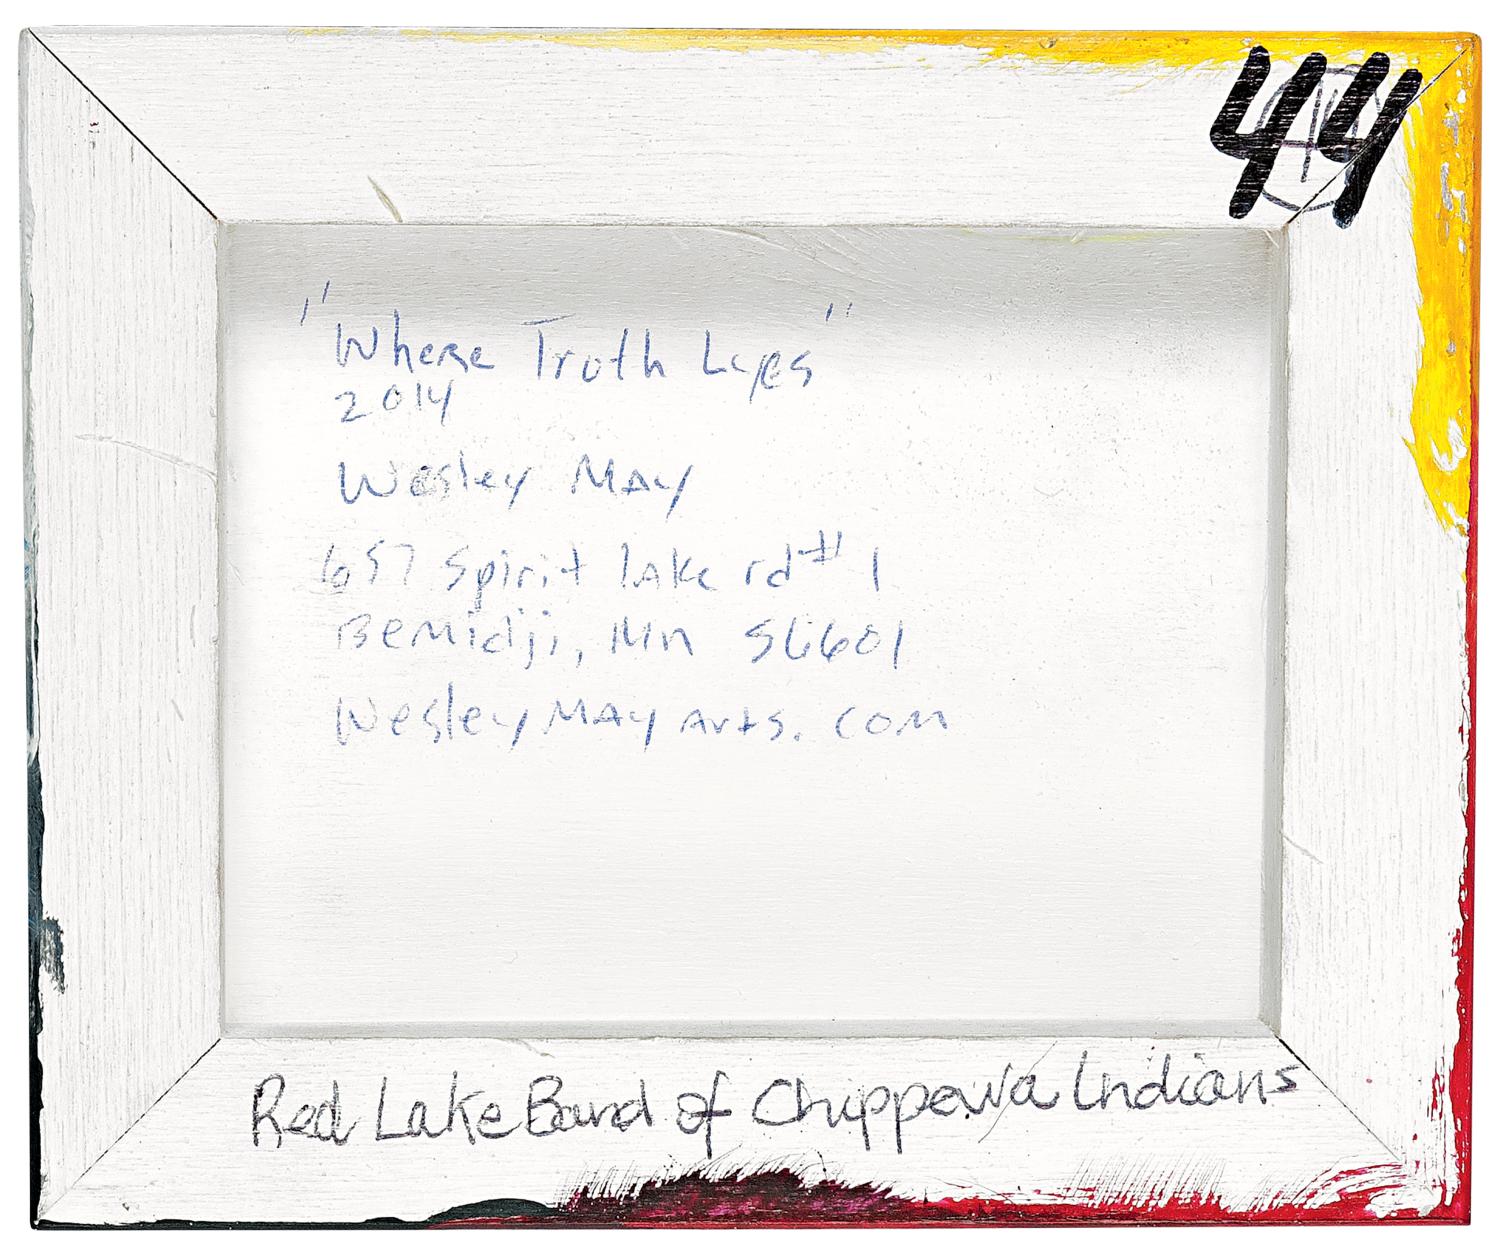 44
"Where Truth Lyes"
2014
Wesley May
657 Spirit lake rd #1
Bemidji, Mn 56601
WesleyMAyArts.com
Red Lake Band of Chippewa Indians